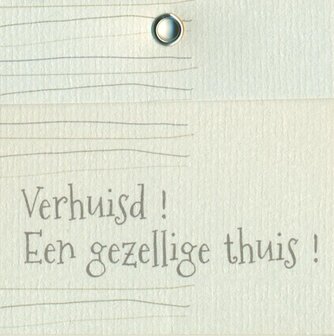 Verhuisd !
Een gezellige thuis !